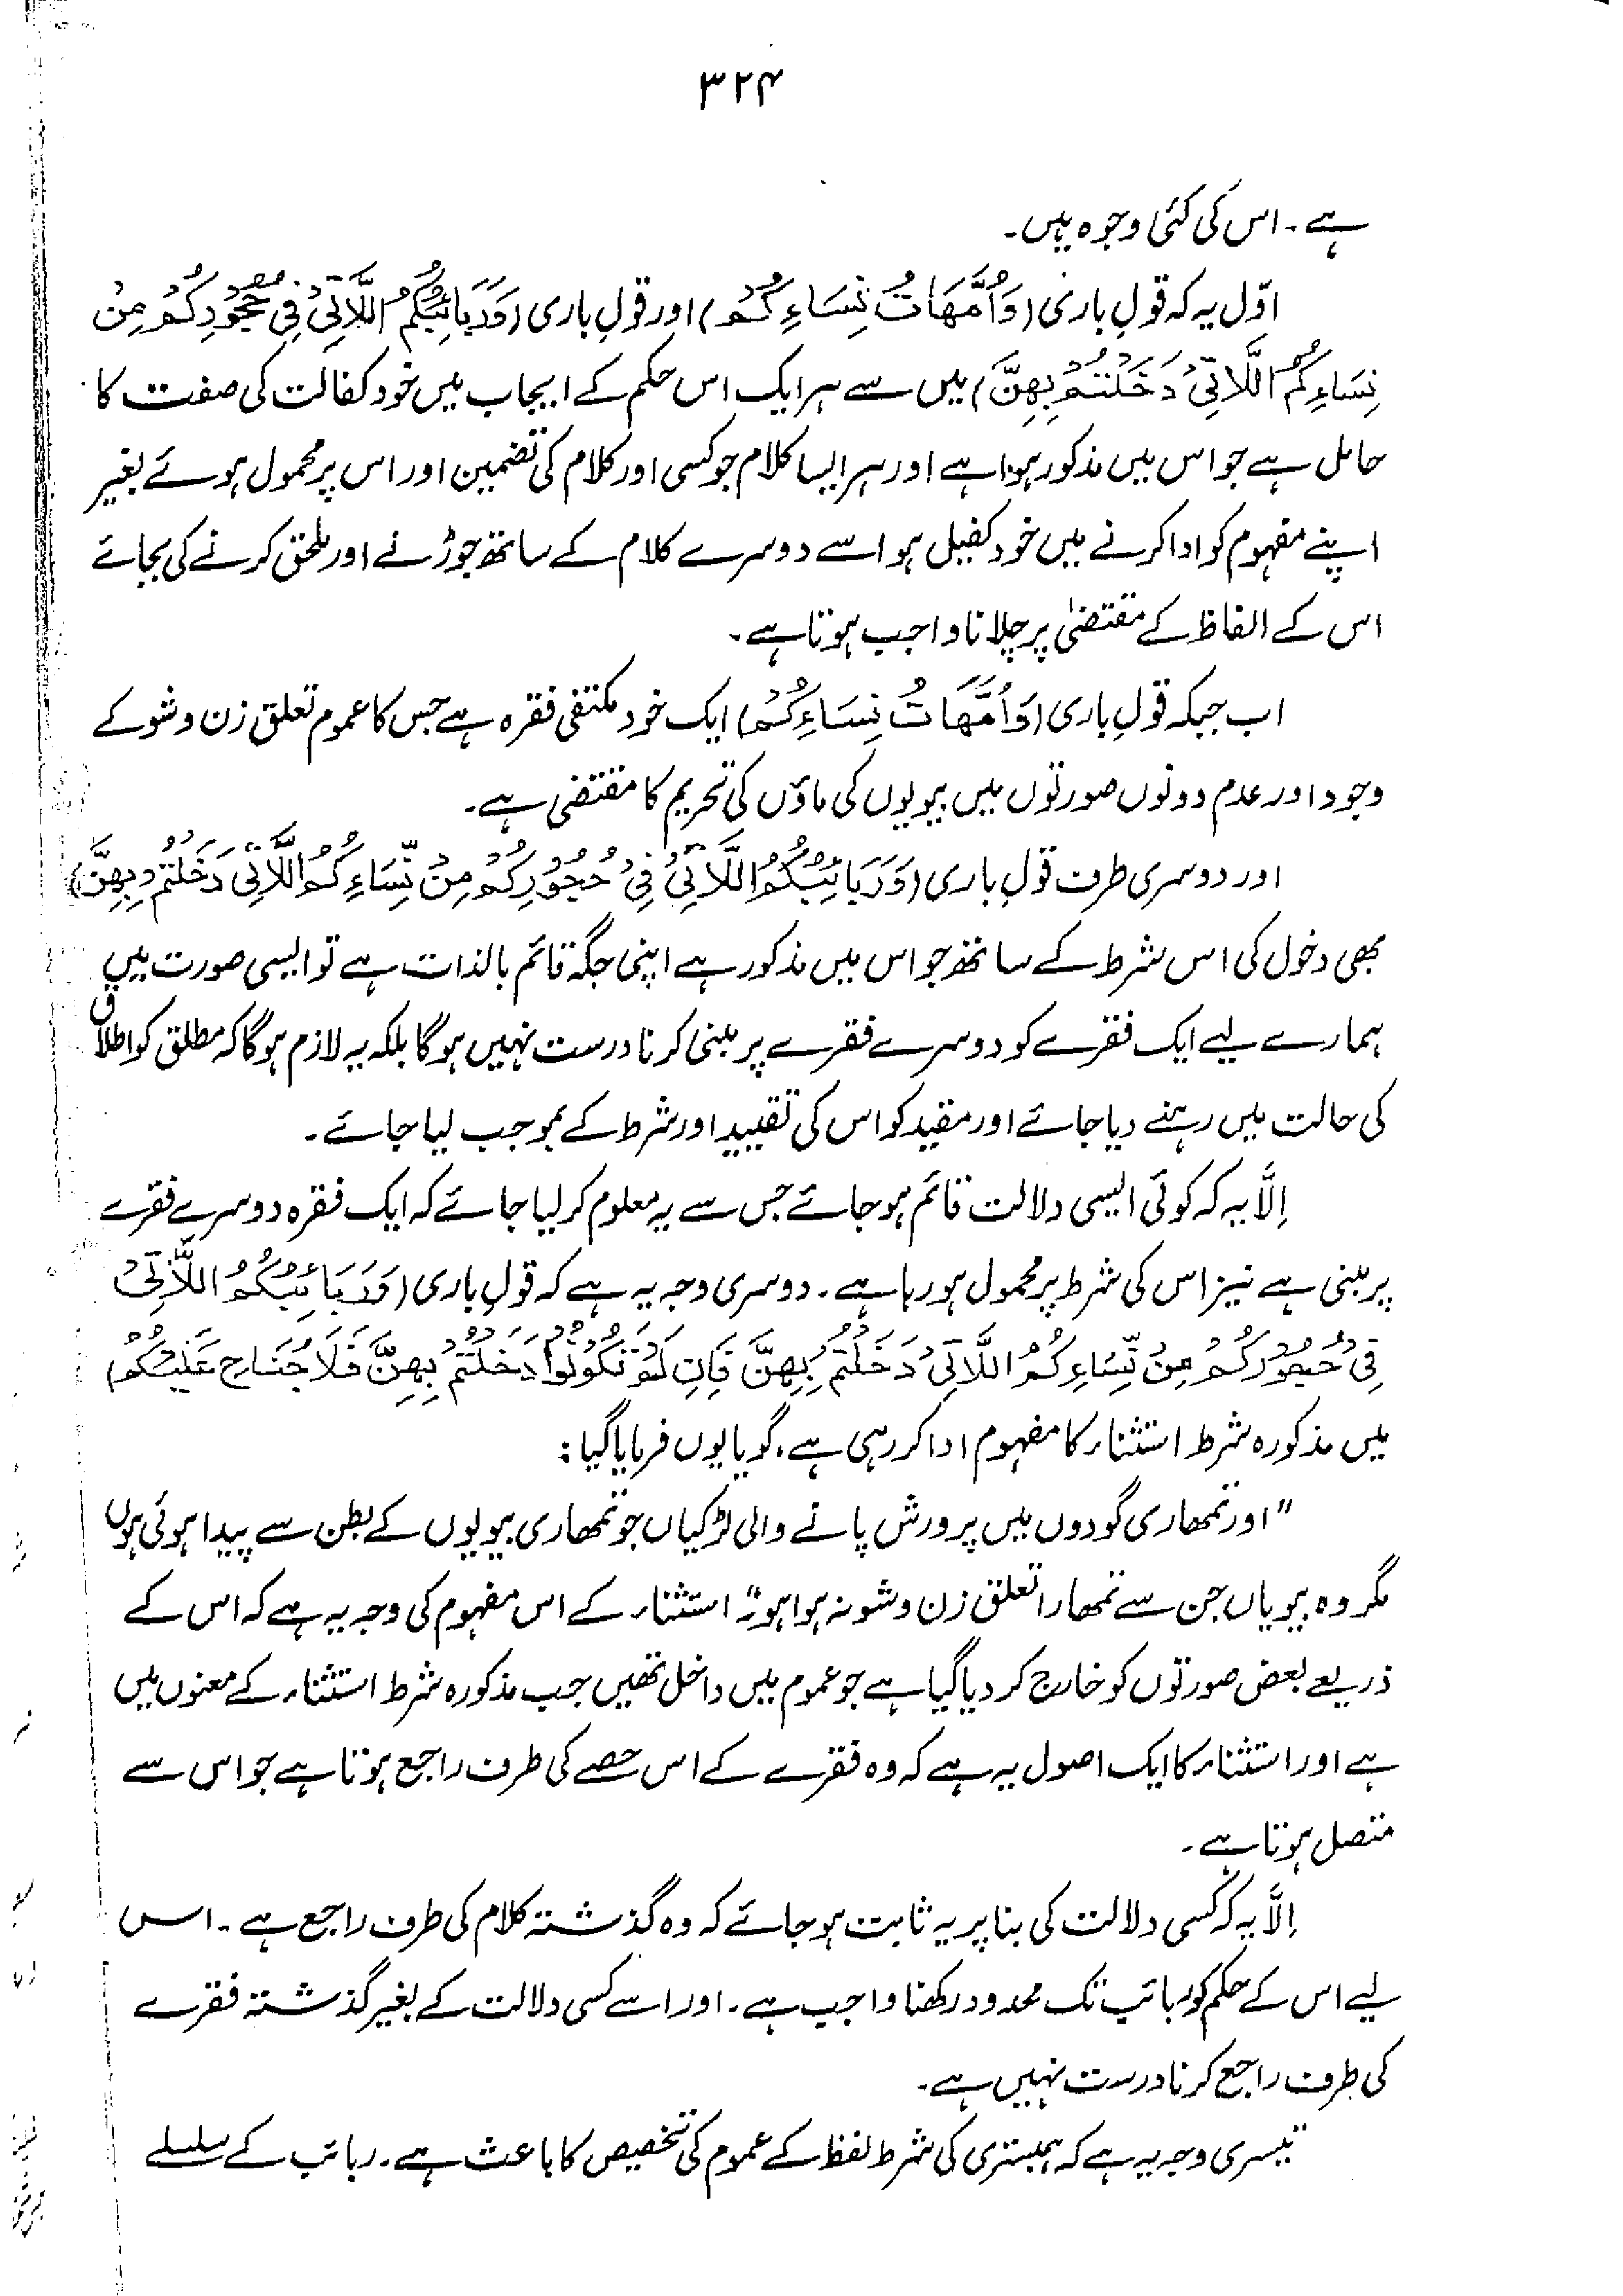 ۳۲۴
ہے۔ اس کی کئی وجوہ ہیں۔
اوّل یہ کہ قولِ باری (وَاُمَّهَاتُ نِسَاءِكُمْ) اور قولِ باری (وَرَبَائِبُكُمُ اللَّاتِيْ فِيْ حُجُوْرِكُمْ مِنْ
نِسَاءِكُمُ اللَّاتِيْ دَخَلْتُمْ بِهِنَّ) میں سے ہر ایک اس حکم کے ایجاب میں خود کفالت کی صفت کا
حامل ہے جو اس میں مذکور ہوا ہے اور ہر ایسا کلام جو کسی اور کلام کی تضمین اور اس پر محمول ہوئے بغیر
اپنے مفہوم کو ادا کرنے میں خود کفیل ہو اسے دوسرے کلام کے ساتھ جوڑنے اور ملحق کرنے کی بجائے
اس کے الفاظ کے مقتضیٰ پر چلانا واجب ہوتا ہے۔
اب جبکہ قولِ باری (وَاُمَّهَاتُ نِسَاءِكُمْ) ایک خود مکتفی فقرہ ہے جس کا عموم تعلق زن و شو کے
وجود اور عدم دونوں صورتوں میں بیویوں کی ماؤں کی تحریم کا مقتضی ہے۔
اور دوسری طرف قولِ باری (وَرَبَائِبُكُمُ اللَّاتِيْ فِيْ حُجُوْرِكُمْ مِنْ نِّسَاءِكُمُ اللَّاتِيْ دَخَلْتُمْ بِهِنَّ)
بھی دخول کی اس شرط کے ساتھ جو اس میں مذکور ہے اپنی جگہ قائم بالذات ہے تو ایسی صورت میں
ہمارے لیے ایک فقرے کو دوسرے فقرے پر مبنی کرنا درست نہیں ہوگا بلکہ یہ لازم ہوگا کہ مطلق کو اطلاق
کی حالت میں رہنے دیا جائے اور مقید کو اس کی تقیید اور شرط کے بموجب لیا جائے۔
اِلَّا یہ کہ کوئی ایسی دلالت قائم ہو جائے جس سے یہ معلوم کر لیا جائے کہ ایک فقرہ دوسرے فقرے
پر مبنی ہے نیز اس کی شرط پر محمول ہو رہا ہے۔ دوسری وجہ یہ ہے کہ قولِ باری (وَرَبَائِبُكُمُ اللَّاتِيْ
فِيْ حُجُوْرِكُمْ مِنْ نِّسَاءِكُمُ اللَّاتِيْ دَخَلْتُمْ بِهِنَّ فَاِنْ لَمْ تَكُوْنُوْا دَخَلْتُمْ بِهِنَّ فَلَا جُنَاحَ عَلَيْكُمْ)
میں مذکورہ شرط استثناء کا مفہوم ادا کر رہی ہے، گویا یوں فرمایا گیا:
”اور تمھاری گودوں میں پرورش پانے والی لڑکیاں جو تمھاری بیویوں کے بطن سے پیدا ہوئی ہوں
مگر وہ بیویاں جن سے تمھارا تعلق زن و شو نہ ہوا ہو“ استثناء کے اس مفہوم کی وجہ یہ ہے کہ اس کے
ذریعے بعض صورتوں کو خارج کر دیا گیا ہے جو عموم میں داخل تھیں جب مذکورہ شرط استثناء کے معنوں میں
ہے اور استثناء کا ایک اصول یہ ہے کہ وہ فقرے کے اس حصے کی طرف راجع ہوتا ہے جو اس سے
متصل ہوتا ہے۔
اِلَّا یہ کہ کسی دلالت کی بنا پر یہ ثابت ہو جائے کہ وہ گذشتہ کلام کی طرف راجع ہے۔ اس
لیے اس کے حکم کو ربائب تک محدود رکھنا واجب ہے۔ اور اسے کسی دلالت کے بغیر گذشتہ فقرے
کی طرف راجع کرنا درست نہیں ہے۔
تیسری وجہ یہ ہے کہ ہمبستری کی شرط لفظ کے عموم کی تخصیص کا باعث ہے۔ ربائب کے سلسلے